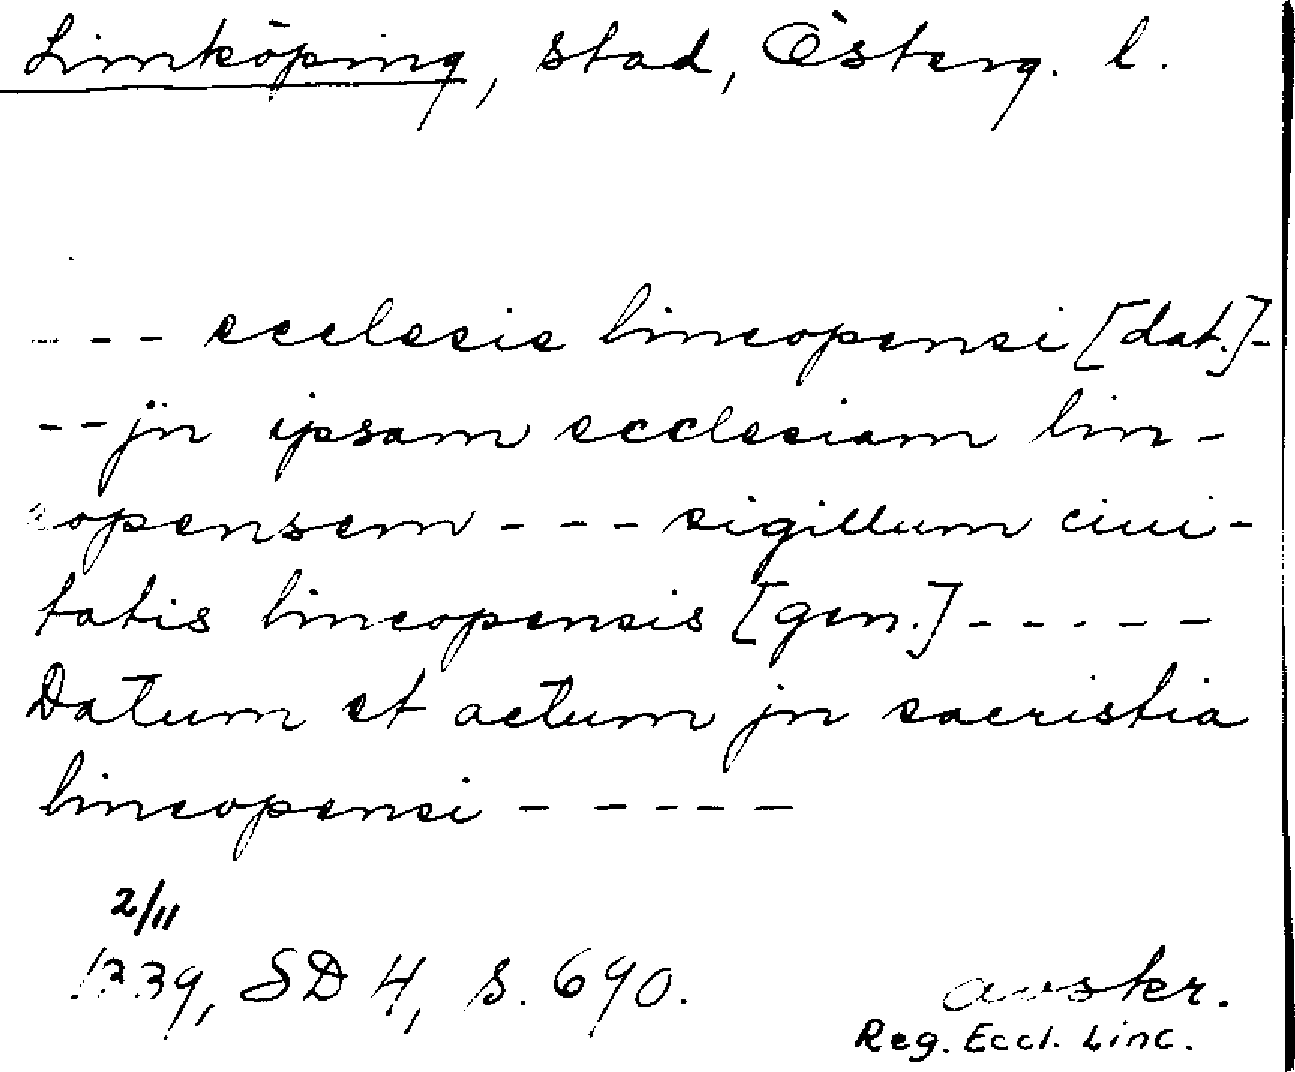 Linköping, stad, Österg. l.
--- ecclesie lincopensi [dat.]-
--jn ipsam ecclesiam lin-
copensem --- sigillum ciui-
tatis lincopensis [gen.]-----
Datum et actum jn sacristia
lincopensi -----
2/11
1339, SD 4, s. 690.
avskr.
Reg. Eccl. Linc.